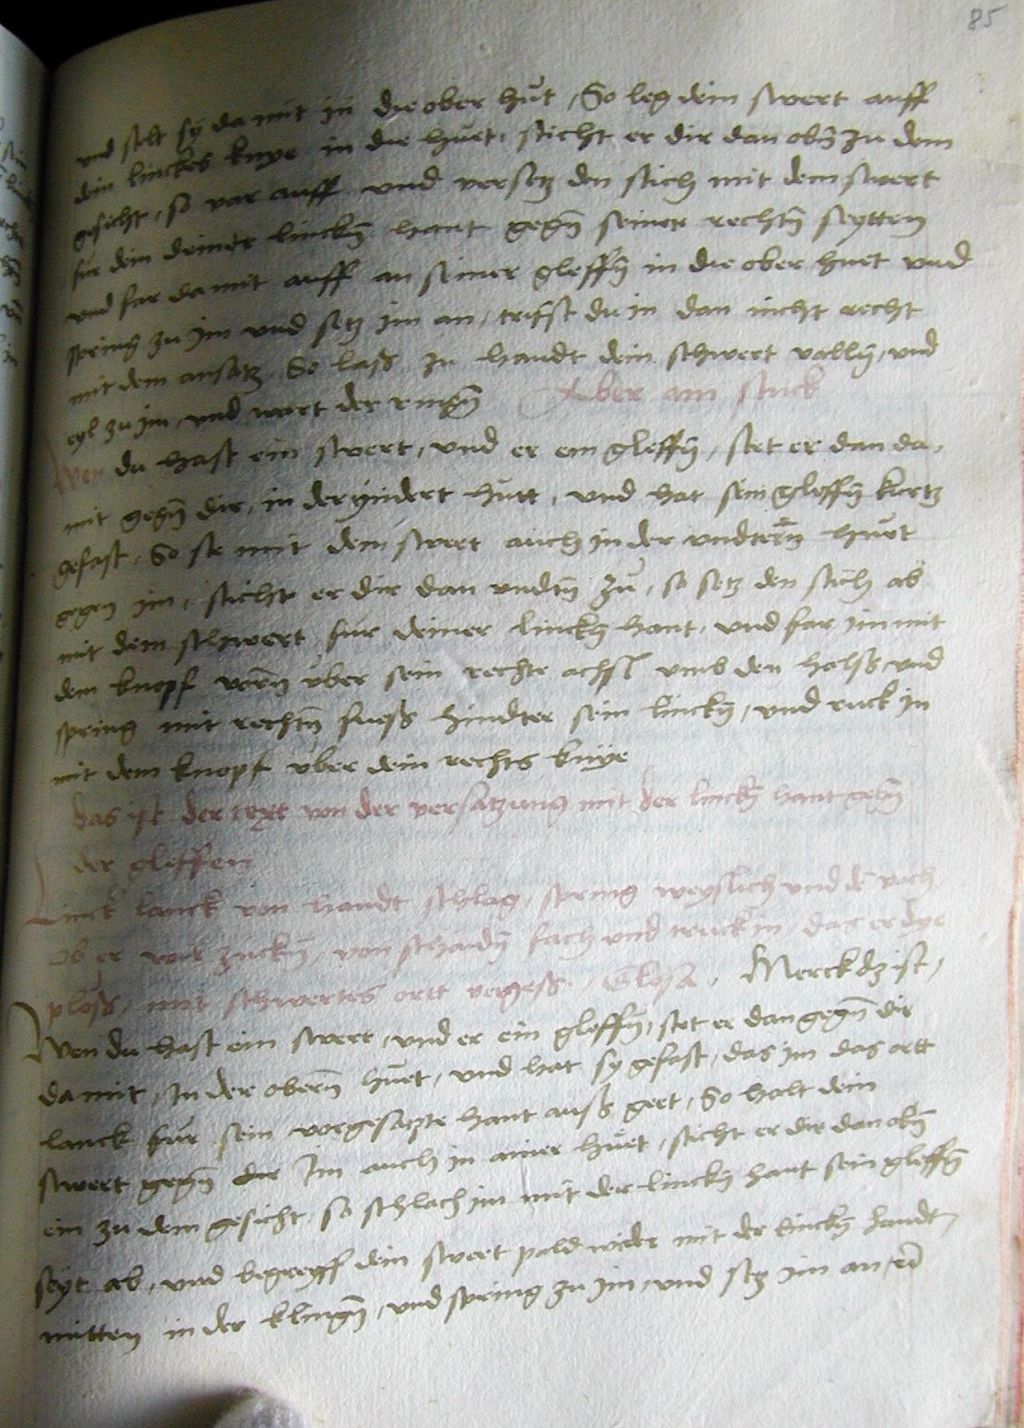 85
und helt sÿ da mit in die ober hut / So leg dein swert auff
dein linckes knye in die huet / sticht er dir dan obñ zu dem
gesicht / so var auff und versetz den stich mit dem swert
für dein deiner linckñ hant gegñ seiner rechtñ seytten
und far da mit auff an seiner gleffñ in die ober huet und
spring zu im und setz im an / trifst du in dan nicht recht
mit dem ansatz So laß zu handt dein schwert vallñ / und
eyl zu im / und wart der ringñ Aber ain stuck
Wen du hast ein swert / und er ein gleffñ / stet er dan da
mit gegñ dir / in der undert hutt / und hat sein gleffñ kurtz
gefast / So ste mit dem swert auch in der undterñ huet
gegen im / sticht er dir dan undtñ zu / so setz den stich ab
mit dem schwert fur deiner linckñ hant / und far im mit
dem knopf vorñ über sein rechte achsl umb den halß und
spring mit rechtñ fueß hindter sein linckñ / und ruck in
mit dem knopf über dein rechts knÿe
das ist der text von der versatzung mit der linckñ hant gegñ
der gleffen
Linck lanck von handt schlag / spring weyslich und dẽ vach
Ob er wil zuckñ / von schaidñ fach und truck in / das er dye
ploß / mit schwertes ortt vergeß / Glosa / Merck dz ist /
Wen du hast ein swert / und er ein gleffñ / stet er dan gegñ dir
da mit / In der oberñ huet / und hat sy gefast / das im das ortt
lanck fur sein vorgesatzte hant auß gett / So halt dein
swert gegñ dir Im auch in ainer huet / sticht er dir dan obñ
ein zu dem gesicht / so schlach im mit der linckñ hant sein gleffñ
seyt ab / und begreyff dein swert pald wider mit der linckñ handt
mitten in der klingñ / und spring zu im / und setz im an /